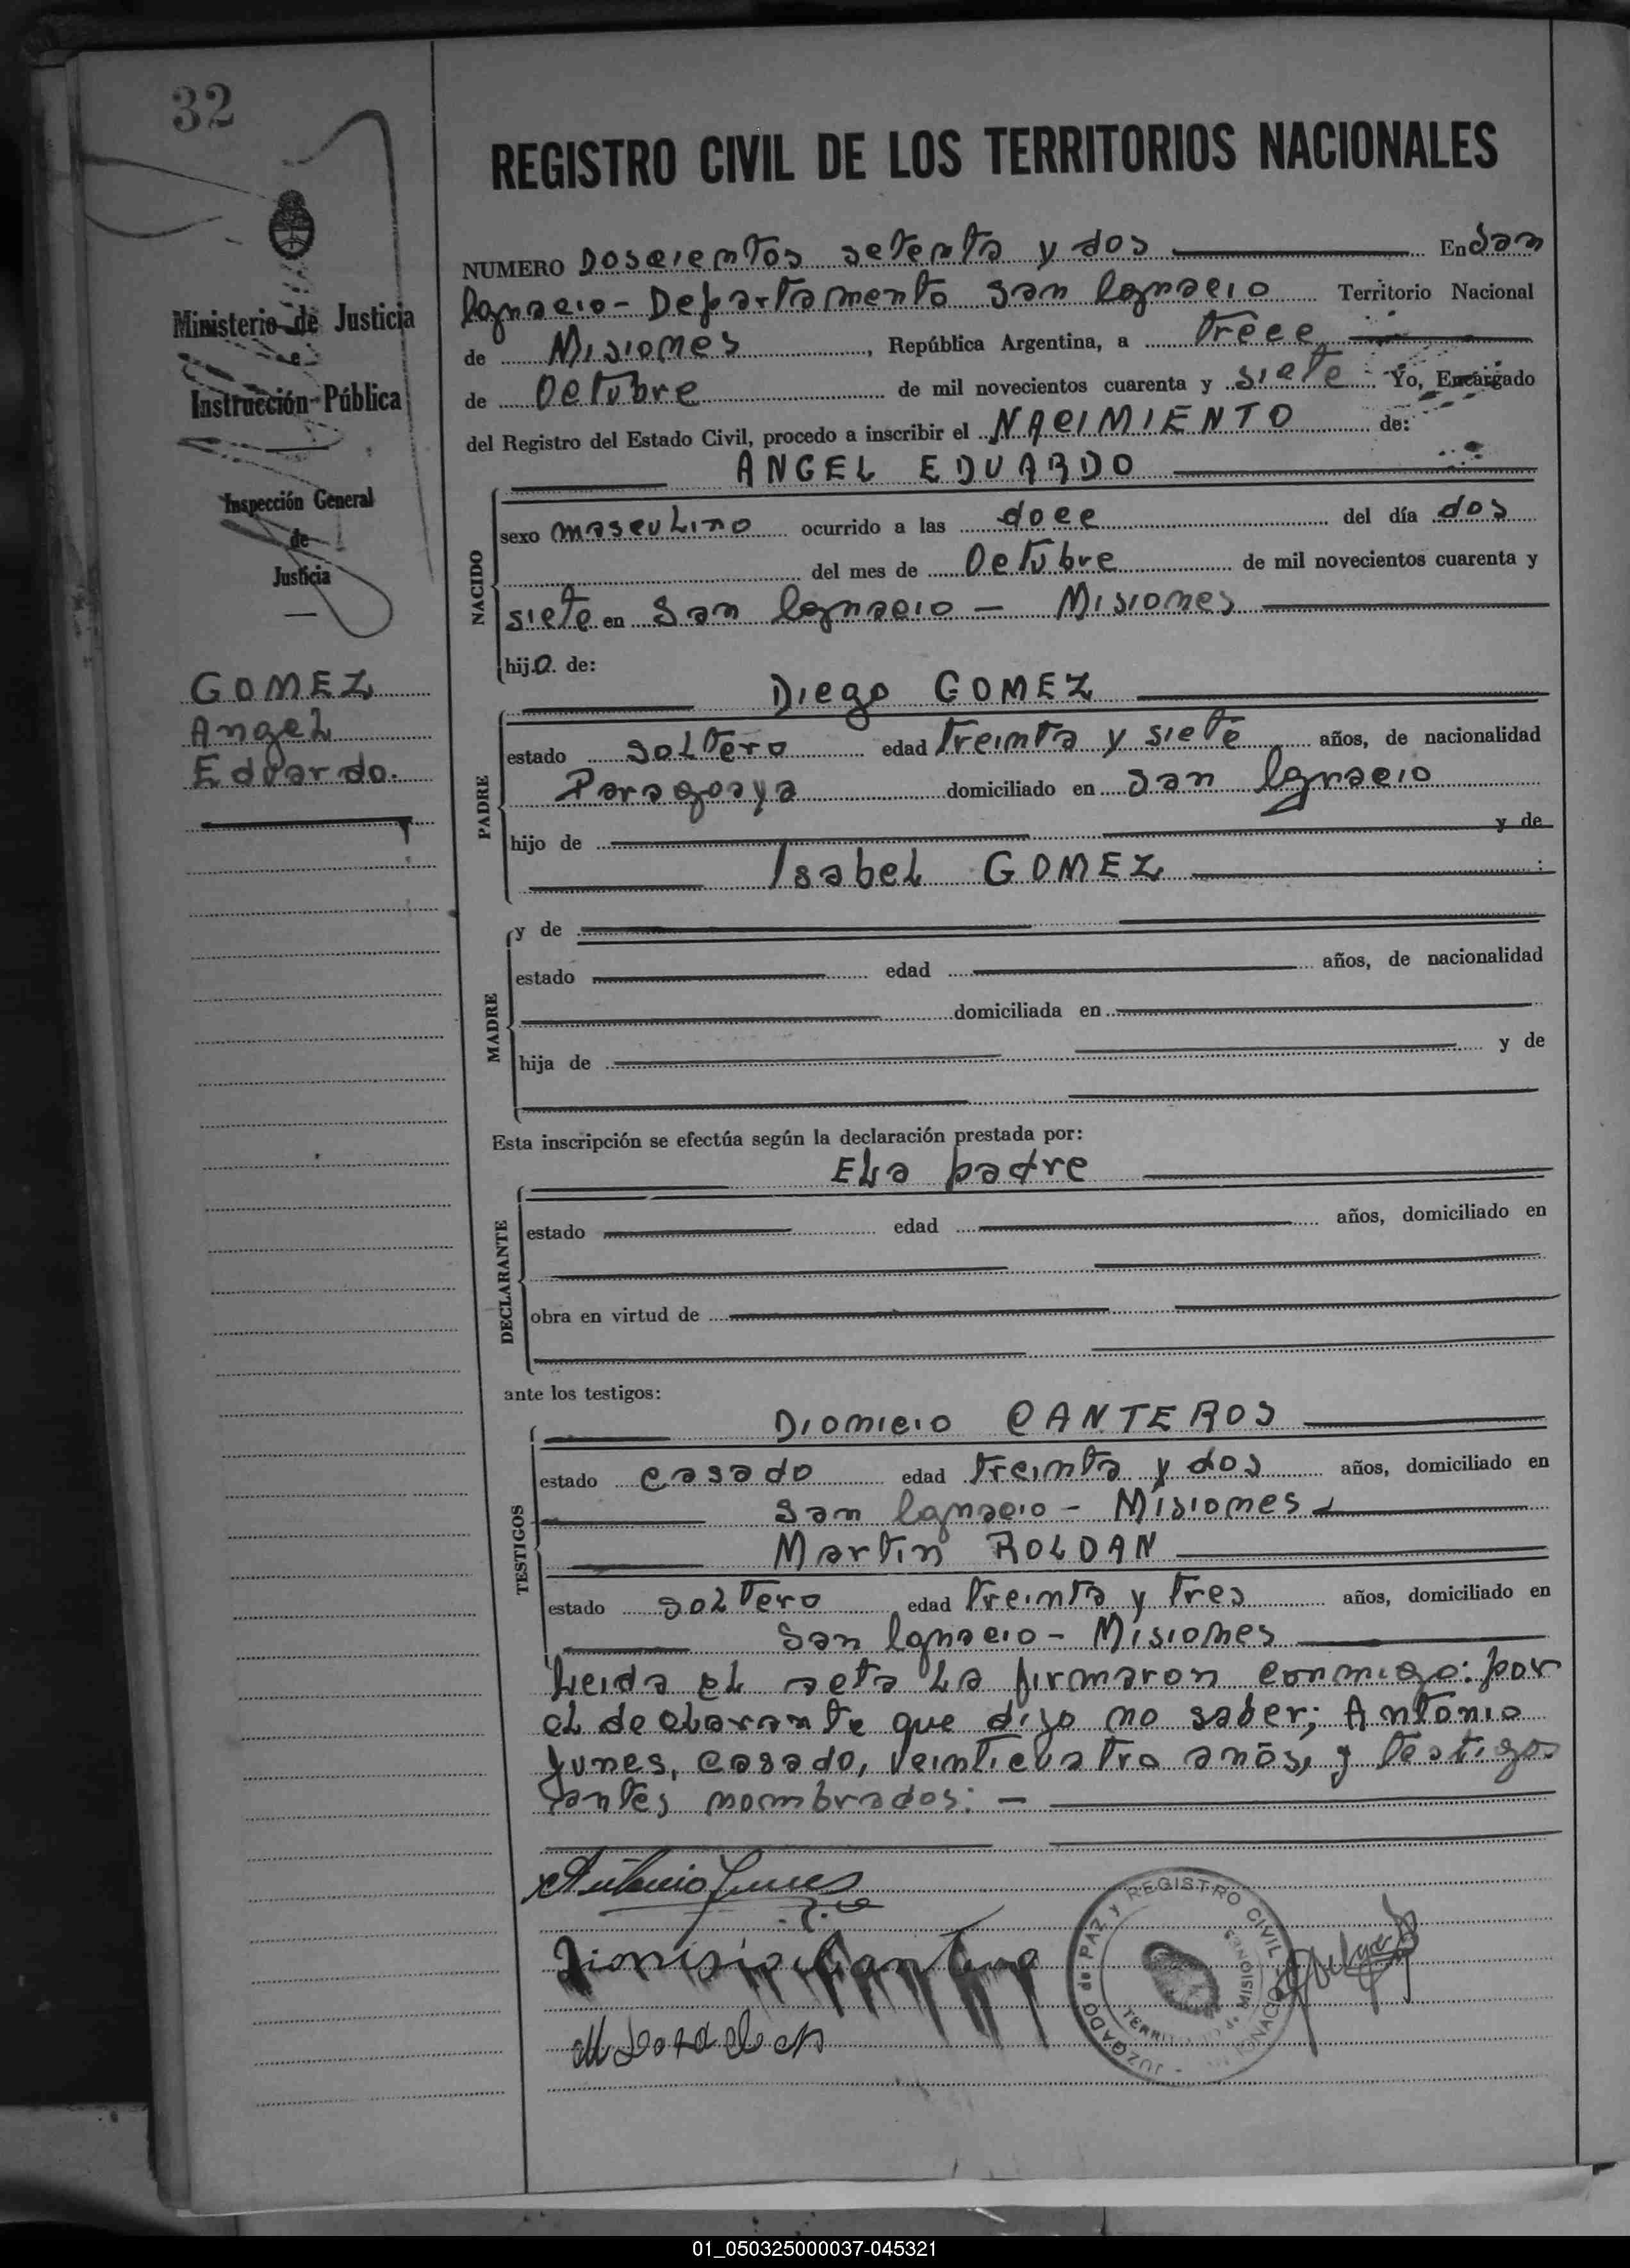 32
REGISTRO CIVIL DE LOS TERRITORIOS NACIONALES
Ministerio de Justicia
e
Instrucción Pública
Inspección General
de
Justicia
GOMEZ
Angel
Eduardo.
NUMERO Doscientos setenta y dos En San
Ignacio - Departamento San Ignacio Territorio Nacional
de Misiones, República Argentina, a trece
de Octubre de mil novecientos cuarenta y siete Yo, Encargado
del Registro del Estado Civil, procedo a inscribir el NACIMIENTO de:
ANGEL EDUARDO
NACIDO
sexo masculino ocurrido a las doce del día dos
del mes de Octubre de mil novecientos cuarenta y
siete en San Ignacio - Misiones
hijo de:
Diego GOMEZ
PADRE
estado soltero edad treinta y siete años, de nacionalidad
Paraguaya domiciliado en San Ignacio
hijo de y de
Isabel GOMEZ
MADRE
y de
estado edad años, de nacionalidad
domiciliada en
hija de y de
Esta inscripción se efectúa según la declaración prestada por:
Ela padre
DECLARANTE
estado edad años, domiciliado en
obra en virtud de
ante los testigos:
TESTIGOS
Diomicio CANTEROS
estado casado edad treinta y dos años, domiciliado en
San Ignacio - Misiones
Martin ROLDAN
estado soltero edad treinta y tres años, domiciliado en
San Ignacio - Misiones
Leida el acta la firmaron conmigo: por
el declarante que dijo no saber; Antonio
Junes, casado, veinticuatro anōs, y testigos
antes nombrados: -
Antonio Junes
Dionisio Cantero
JUZGADO de PAZ y REGISTRO CIVIL
MISIONES
01_050325000037-045321